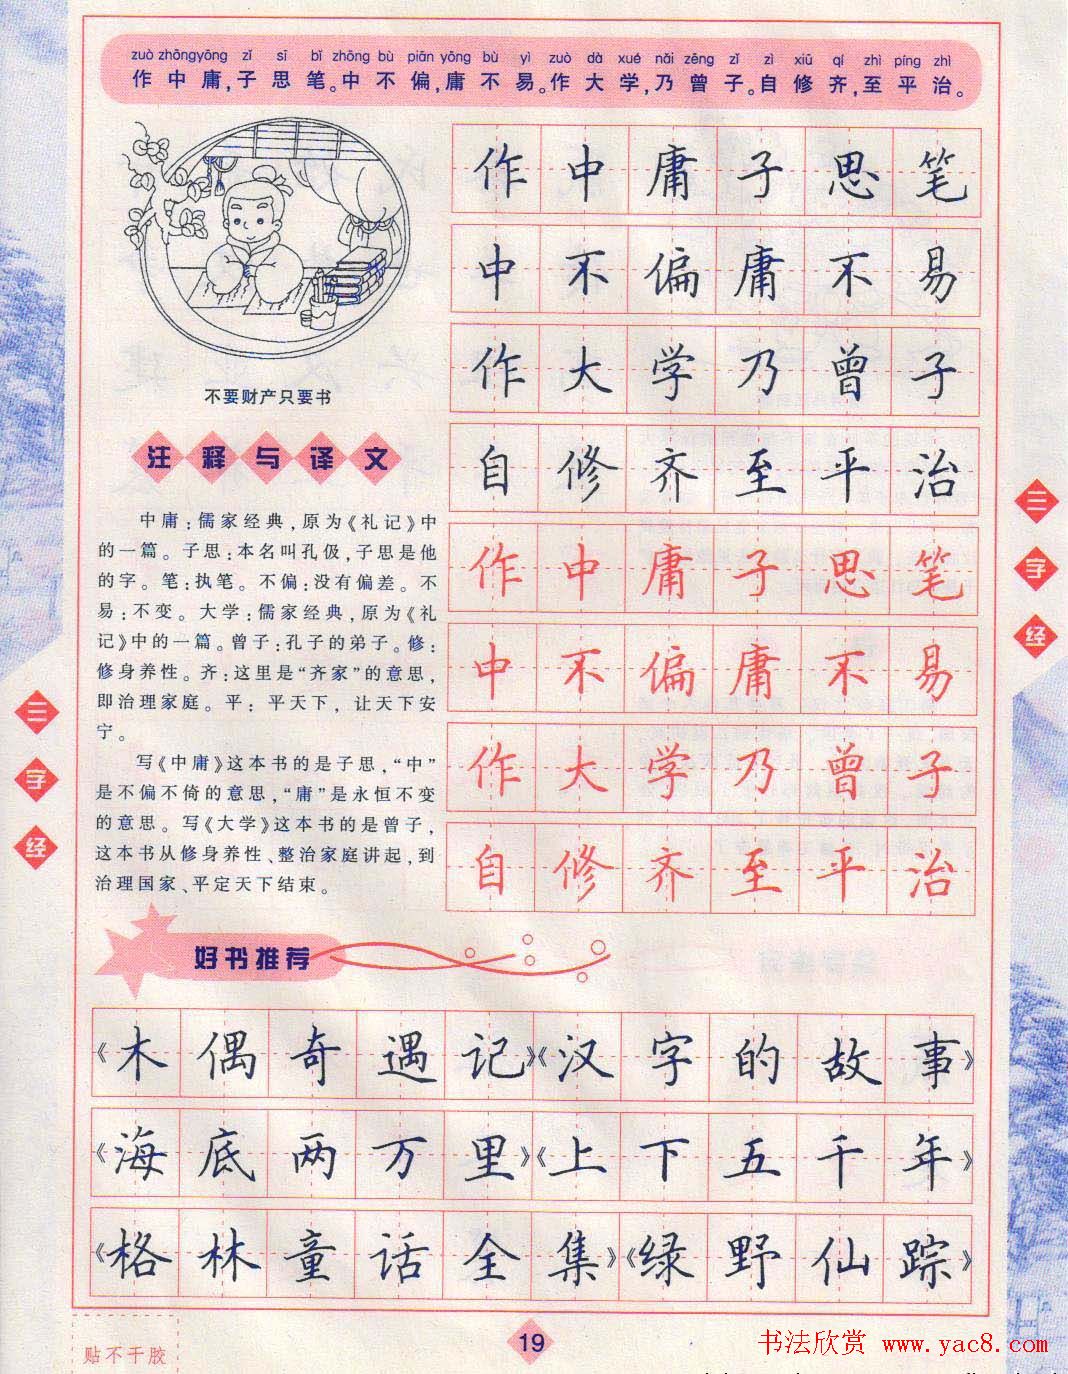 zuò zhōngyōng zǐ sī bǐ zhōng bù piān yōng bù yì zuò dà xué nǎi zēng zǐ zì xiū qí zhì píng zhì
作中庸,子思笔。中不偏,庸不易。作大学,乃曾子。自修齐,至平治。
不要财产只要书
注释与译文
中庸:儒家经典,原为《礼记》中
的一篇。子思:本名叫孔伋,子思是他
的字。笔:执笔。不偏:没有偏差。不
易:不变。大学:儒家经典,原为《礼
记》中的一篇。曾子:孔子的弟子。修:
修身养性。齐:这里是“齐家”的意思,
即治理家庭。平:平天下,让天下安
宁。
写《中庸》这本书的是子思,“中”
是不偏不倚的意思,“庸”是永恒不变
的意思。写《大学》这本书的是曾子,
这本书从修身养性、整治家庭讲起,到
治理国家、平定天下结束。
作中庸子思笔
中不偏庸不易
作大学乃曾子
自修齐至平治
作中庸子思笔
中不偏庸不易
作大学乃曾子
自修齐至平治
三字经
三字经
好书推荐
《木偶奇遇记》《汉字的故事》
《海底两万里》《上下五千年》
《格林童话全集》《绿野仙踪》
贴不干胶
19
书法欣赏 www.yac8.com